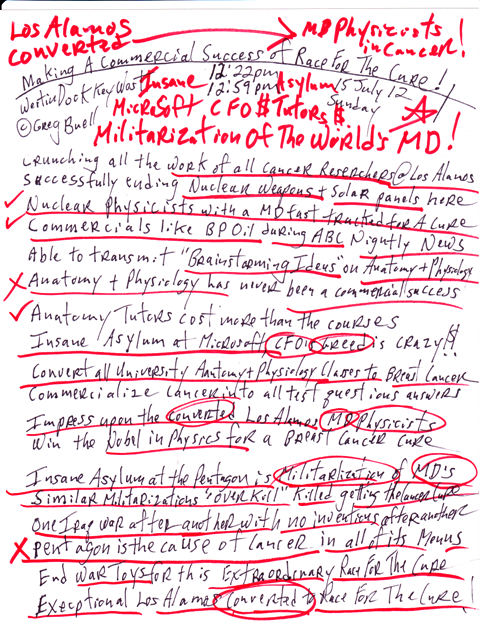 Los Alamos
converted
MD Physicists
in Cancer!
Making A Commercial Success of Race For The Cure!
Westin Dock Key West
12:22pm
12:59pm
15 July 12
Sunday
Insane Asylum
© Greg Buell
MicroSoft CFO $ Tutors $
Militarization of The World's MD!
Crunching all the work of all Cancer Reserchers @ Los Alamos
Successfully ending Nuclear Weapons + Solar panels here
Nuclear Physicists with a MD fast tracked for A Cure
Commercials like BP Oil during ABC Nightly News
Able to transmit "Brainstorming Ideas" on Anatomy + Physiology
Anatomy + Physiology has never been a commercial success
Anatomy Tutors cost more than the courses
Insane Asylum at Microsoft, CFO's Greed is crazy!!
Convert all University Anatomy + Physiology Classes to Breast Cancer
Commercialize Cancer into all test questions answers
Impress upon the converted Los Alamos MD Physicists
Win the Nobel in Physics for a Breast Cancer Cure
Insane Asylum at the Pentagon is Militarization of MD's
Similar Militarizations "over Kill" Killed getting the cancer Cure
One Iraq War after another with no inventions after another
Pentagon is the cause of Cancer in all of its Moms
End War Toys for this Extraordinary Race For The Cure
Exceptional Los Alamos Converted to Race For The Cure!